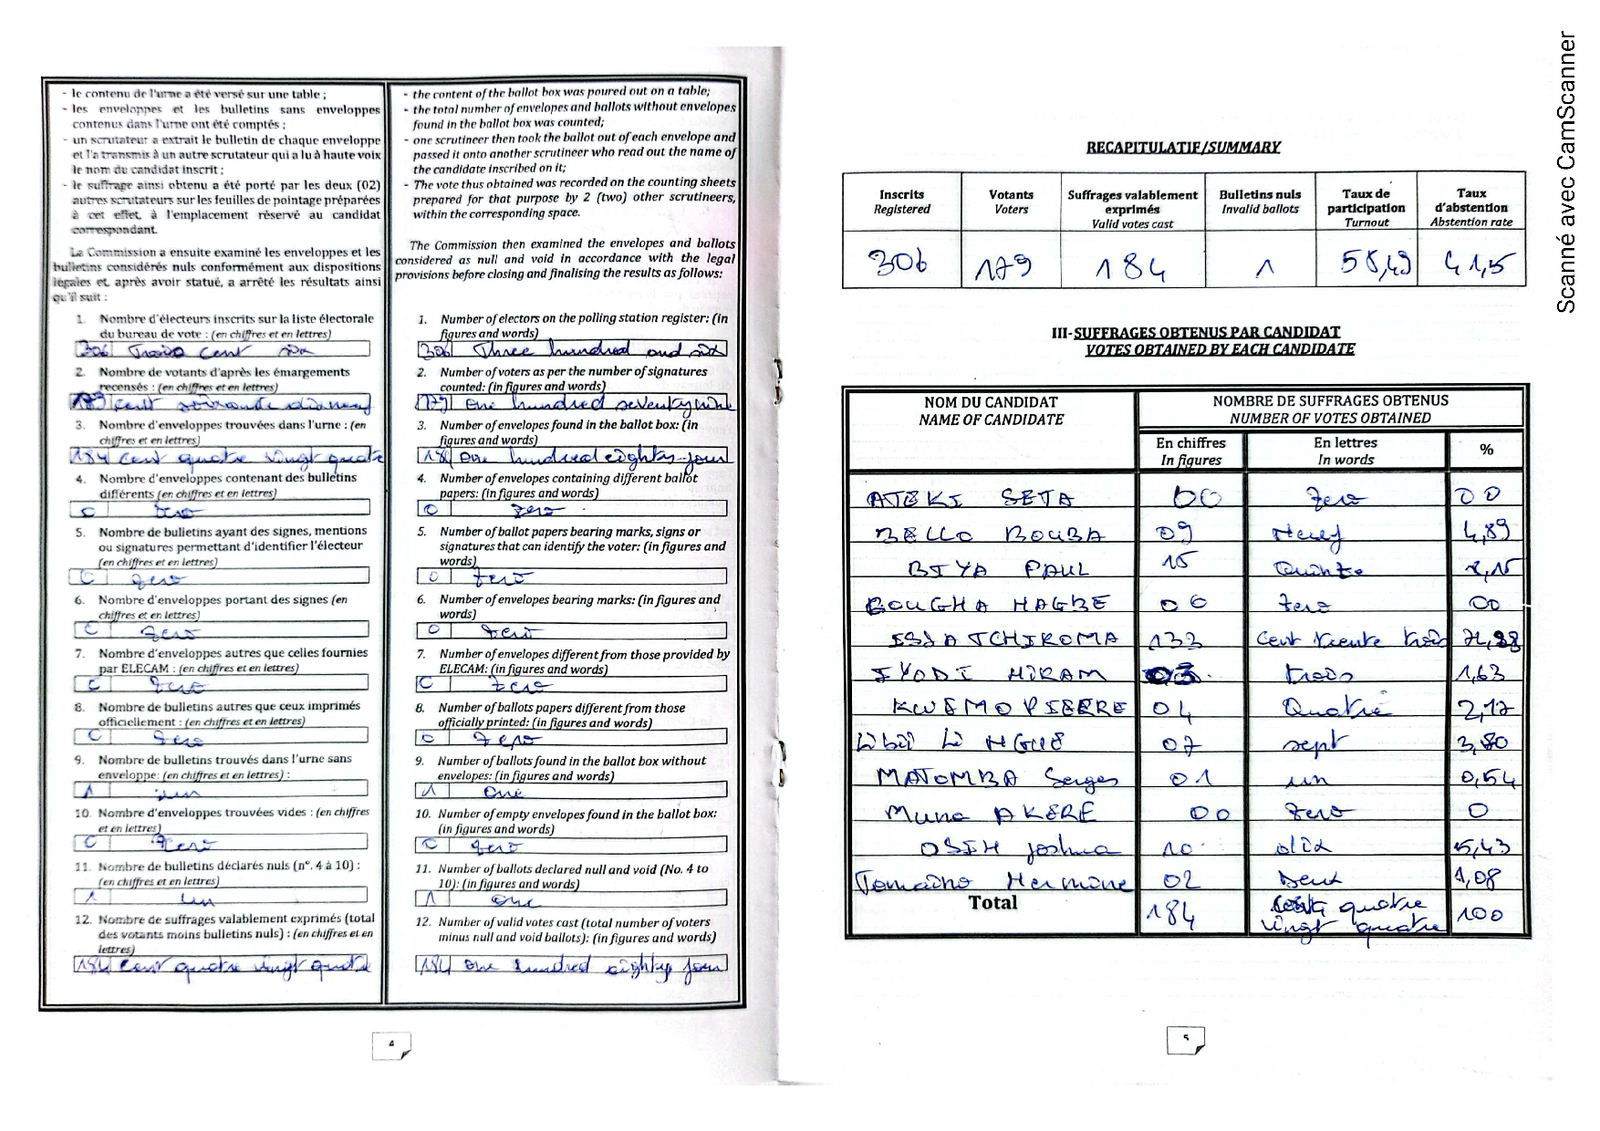 - le contenu de l'urne a été versé sur une table ;
- les enveloppes et les bulletins sans enveloppes
contenus dans l'urne ont été comptés ;
- un scrutateur a extrait le bulletin de chaque enveloppe
et l'a transmis à un autre scrutateur qui a lu à haute voix
le nom du candidat inscrit ;
- le suffrage ainsi obtenu a été porté par les deux (02)
autres scrutateurs sur les feuilles de pointage préparées
à cet effet, à l'emplacement réservé au candidat
correspondant.
La Commission a ensuite examiné les enveloppes et les
bulletins considérés nuls conformément aux dispositions
légales et, après avoir statué, a arrêté les résultats ainsi
qu'il suit :
1. Nombre d'électeurs inscrits sur la liste électorale
du bureau de vote : (en chiffres et en lettres)
306 Trois cent six
2. Nombre de votants d'après les émargements
recensés : (en chiffres et en lettres)
179 cent soixante dix neuf
3. Nombre d'enveloppes trouvées dans l'urne : (en
chiffres et en lettres)
184 cent quatre vingt quatre
4. Nombre d'enveloppes contenant des bulletins
différents (en chiffres et en lettres)
0 zero
5. Nombre de bulletins ayant des signes, mentions
ou signatures permettant d'identifier l'électeur
(en chiffres et en lettres)
0 zero
6. Nombre d'enveloppes portant des signes (en
chiffres et en lettres)
0 zero
7. Nombre d'enveloppes autres que celles fournies
par ELECAM : (en chiffres et en lettres)
0 zero
8. Nombre de bulletins autres que ceux imprimés
officiellement : (en chiffres et en lettres)
0 zero
9. Nombre de bulletins trouvés dans l'urne sans
enveloppe: (en chiffres et en lettres) :
1 un
10. Nombre d'enveloppes trouvées vides : (en chiffres
et en lettres)
0 zero
11. Nombre de bulletins déclarés nuls (n°. 4 à 10) :
(en chiffres et en lettres)
1 un
12. Nombre de suffrages valablement exprimés (total
des votants moins bulletins nuls) : (en chiffres et en
lettres)
184 cent quatre vingt quatre
- the content of the ballot box was poured out on a table;
- the total number of envelopes and ballots without envelopes
found in the ballot box was counted;
- one scrutineer then took the ballot out of each envelope and
passed it onto another scrutineer who read out the name of
the candidate inscribed on it;
- The vote thus obtained was recorded on the counting sheets
prepared for that purpose by 2 (two) other scrutineers,
within the corresponding space.
The Commission then examined the envelopes and ballots
considered as null and void in accordance with the legal
provisions before closing and finalising the results as follows:
1. Number of electors on the polling station register: (in
figures and words)
306 Three hundred and six
2. Number of voters as per the number of signatures
counted: (in figures and words)
179 one hundred seventy nine
3. Number of envelopes found in the ballot box: (in
figures and words)
184 one hundred eighty-four
4. Number of envelopes containing different ballot
papers: (in figures and words)
0 zero
5. Number of ballot papers bearing marks, signs or
signatures that can identify the voter: (in figures and
words)
0 zero
6. Number of envelopes bearing marks: (in figures and
words)
0 zero
7. Number of envelopes different from those provided by
ELECAM: (in figures and words)
0 zero
8. Number of ballots papers different from those
officially printed: (in figures and words)
0 zero
9. Number of ballots found in the ballot box without
envelopes: (in figures and words)
1 one
10. Number of empty envelopes found in the ballot box:
(in figures and words)
0 zero
11. Number of ballots declared null and void (No. 4 to
10): (in figures and words)
1 one
12. Number of valid votes cast (total number of voters
minus null and void ballots): (in figures and words)
184 one hundred eighty four
4
RECAPITULATIF/SUMMARY
Inscrits Registered
Votants Voters
Suffrages valablement exprimés Valid votes cast
Bulletins nuls Invalid ballots
Taux de participation Turnout
Taux d'abstention Abstention rate
306 179 184 1 58,49 41,5
III- SUFFRAGES OBTENUS PAR CANDIDAT
VOTES OBTAINED BY EACH CANDIDATE
NOM DU CANDIDAT
NAME OF CANDIDATE
NOMBRE DE SUFFRAGES OBTENUS
NUMBER OF VOTES OBTAINED
En chiffres In figures
En lettres In words
%
ATEKI SETA 00 zero 00
BELLO BOUBA 09 Neuf 4,89
BIYA PAUL 15 Quinze 8,15
BOUGHA HAGBE 00 zero 00
ISSA TCHIROMA 133 cent trente trois
IYODI HIRAM 03 trois 1,63
KWEMO PIERRE 04 Quatre 2,17
Libii Li NGUE 07 sept 3,80
MATOMBA Serges 01 un 0,54
Muna AKERE 00 zero 0
OSIH Joshua 10 dix 5,43
Tomaino Hermine 02 Deux 1,08
Total 184 cent quatre vingt quatre 100
5
Scanné avec CamScanner